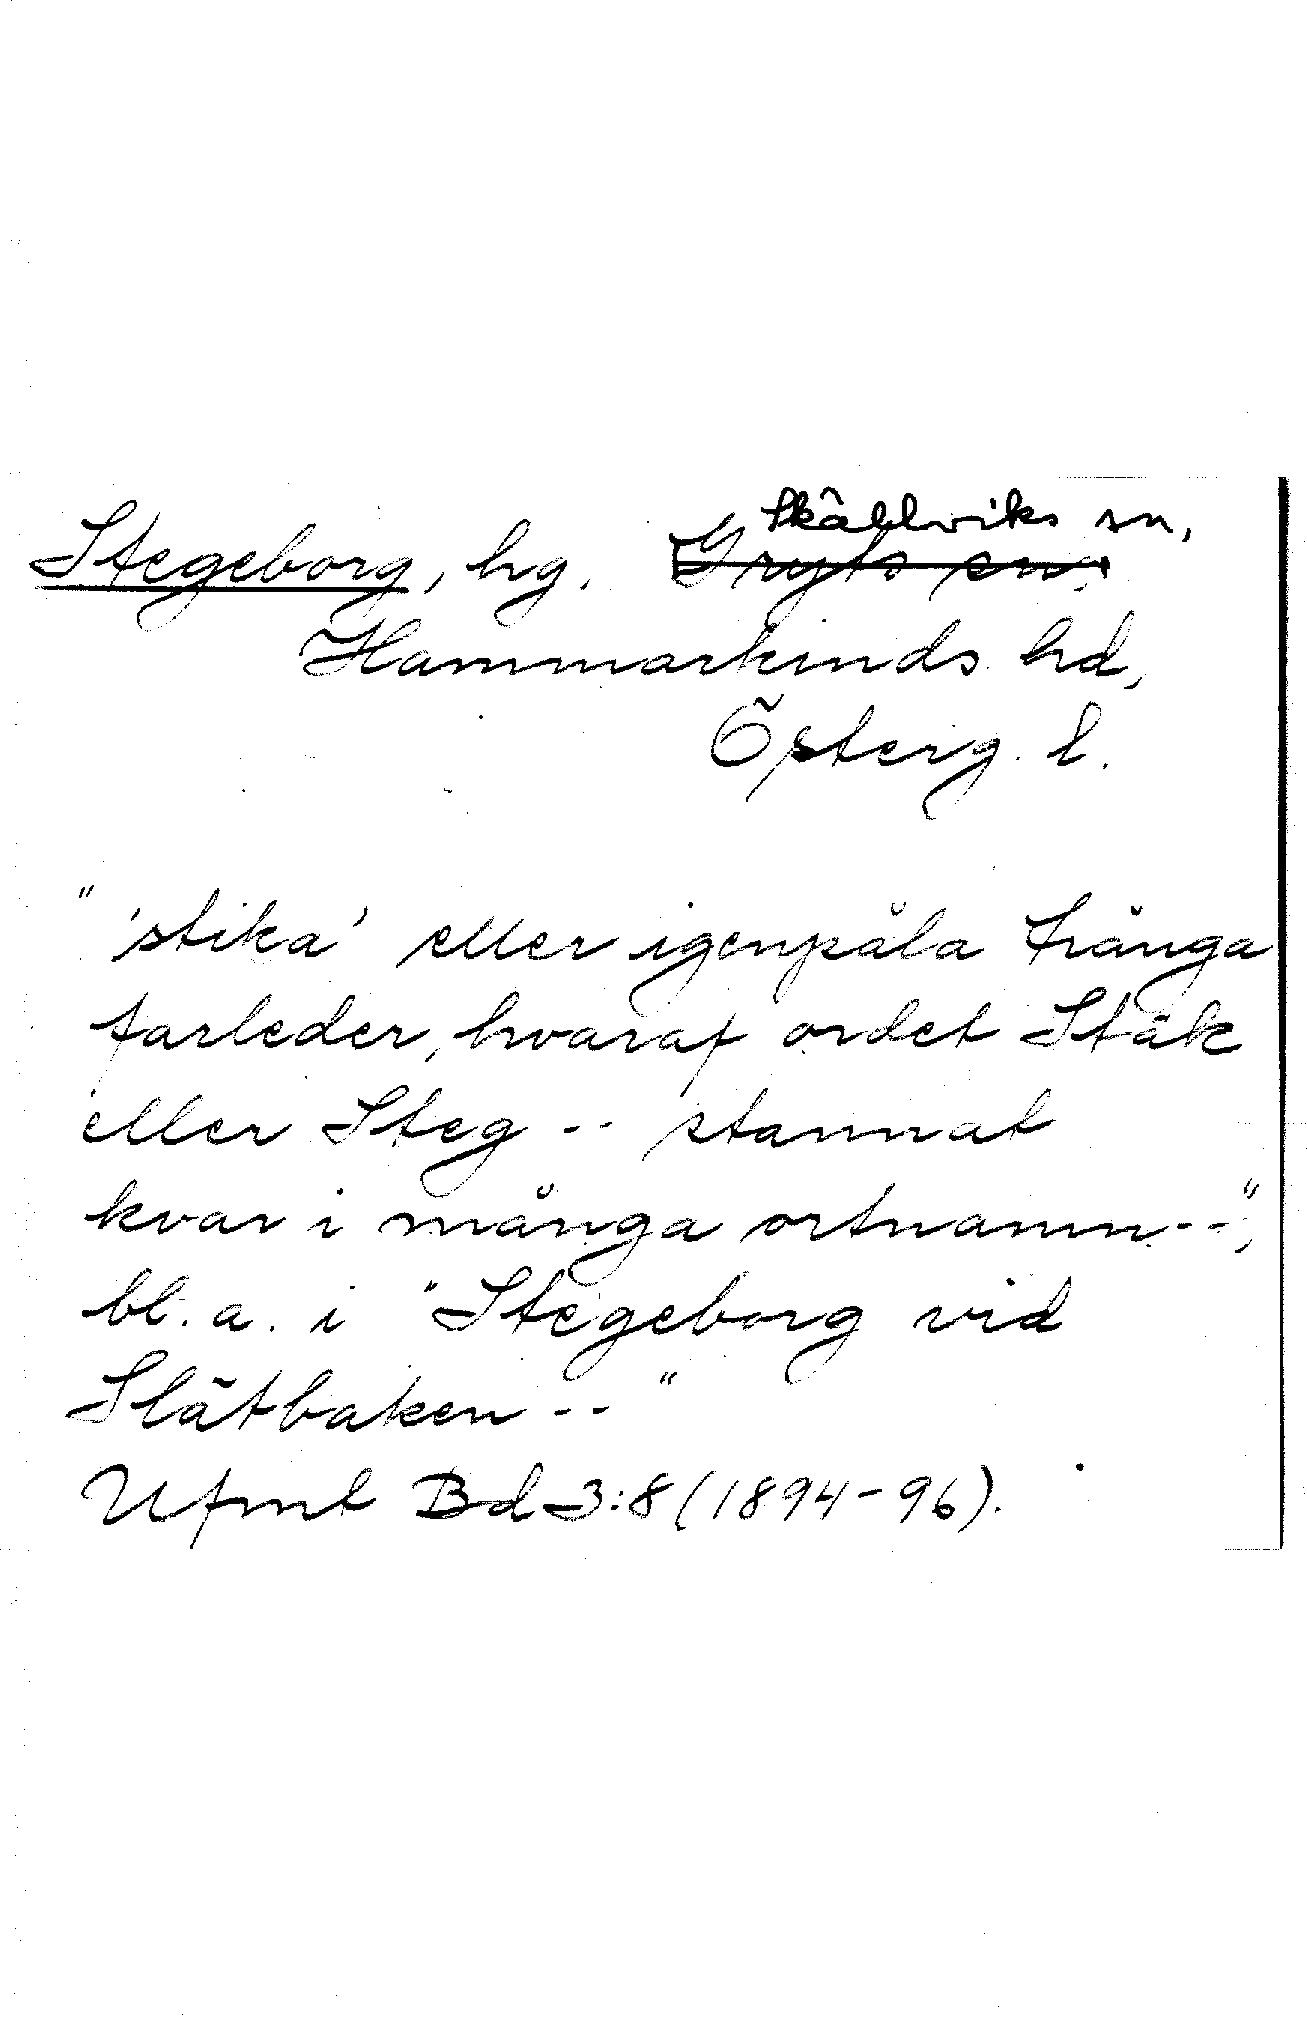 Skällviks sn,
Stegeborg, hg. Gryts sn.
Hammarkinds hd,
Österg. l.
"'stika' eller igenpåla trånga
farleder, hvaraf ordet Stäk
eller Steg -- stannat
kvar i många ortnamn--",
bl. a. i "Stegeborg vid
Slätbaken --"
Ufmt Bd 3:8 (1894-96).